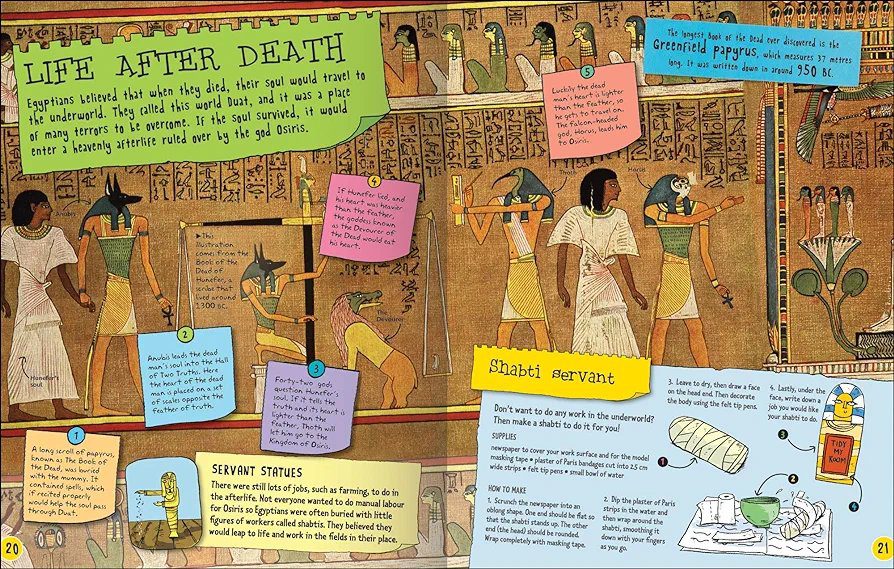 LIFE AFTER DEATH
Egyptians believed that when they died, their soul would travel to
the underworld. They called this world Duat, and it was a place
of many terrors to be overcome. If the soul survived, it would
enter a heavenly afterlife ruled over by the god Osiris.
Anubis
Hunefer's
soul
►This
illustration
comes from the
Book of the
Dead of
Hunefer, a
scribe that
lived around
1300 BC.
1
A long scroll of papyrus,
known as The Book of
the Dead, was buried
with the mummy. It
contained spells, which
if recited properly
would help the soul pass
through Duat.
2
Anubis leads the dead
man's soul into the Hall
of Two Truths. Here
the heart of the dead
man is placed on a set
of scales opposite the
feather of truth.
3
Forty-two gods
question Hunefer's
soul. If it tells the
truth and its heart is
lighter than the
feather, Thoth will
let him go to the
Kingdom of Osiris.
4
If Hunefer lied, and
his heart was heavier
than the feather,
the goddess known
as the Devourer of
the Dead would eat
his heart.
The
Devourer
SERVANT STATUES
There were still lots of jobs, such as farming, to do in
the afterlife. Not everyone wanted to do manual labour
for Osiris so Egyptians were often buried with little
figures of workers called shabtis. They believed they
would leap to life and work in the fields in their place.
20
5
Luckily the dead
man's heart is lighter
than the feather, so
he gets to travel on.
The falcon-headed
god, Horus, leads him
to Osiris.
Thoth
Horus
The longest Book of the Dead ever discovered is the
Greenfield papyrus, which measures 37 metres
long. It was written down in around 950 BC.
Shabti servant
Don't want to do any work in the underworld?
Then make a shabti to do it for you!
SUPPLIES
newspaper to cover your work surface and for the model
masking tape • plaster of Paris bandages cut into 2.5 cm
wide strips • felt tip pens • small bowl of water
HOW TO MAKE
1. Scrunch the newspaper into an
oblong shape. One end should be flat so
that the shabti stands up. The other
end (the head) should be rounded.
Wrap completely with masking tape.
2. Dip the plaster of Paris
strips in the water and
then wrap around the
shabti, smoothing it
down with your fingers
as you go.
3. Leave to dry, then draw a face
on the head end. Then decorate
the body using the felt tip pens.
4. Lastly, under the
face, write down a
job you would like
your shabti to do.
1
2
3
4
TIDY
MY
ROOM
21